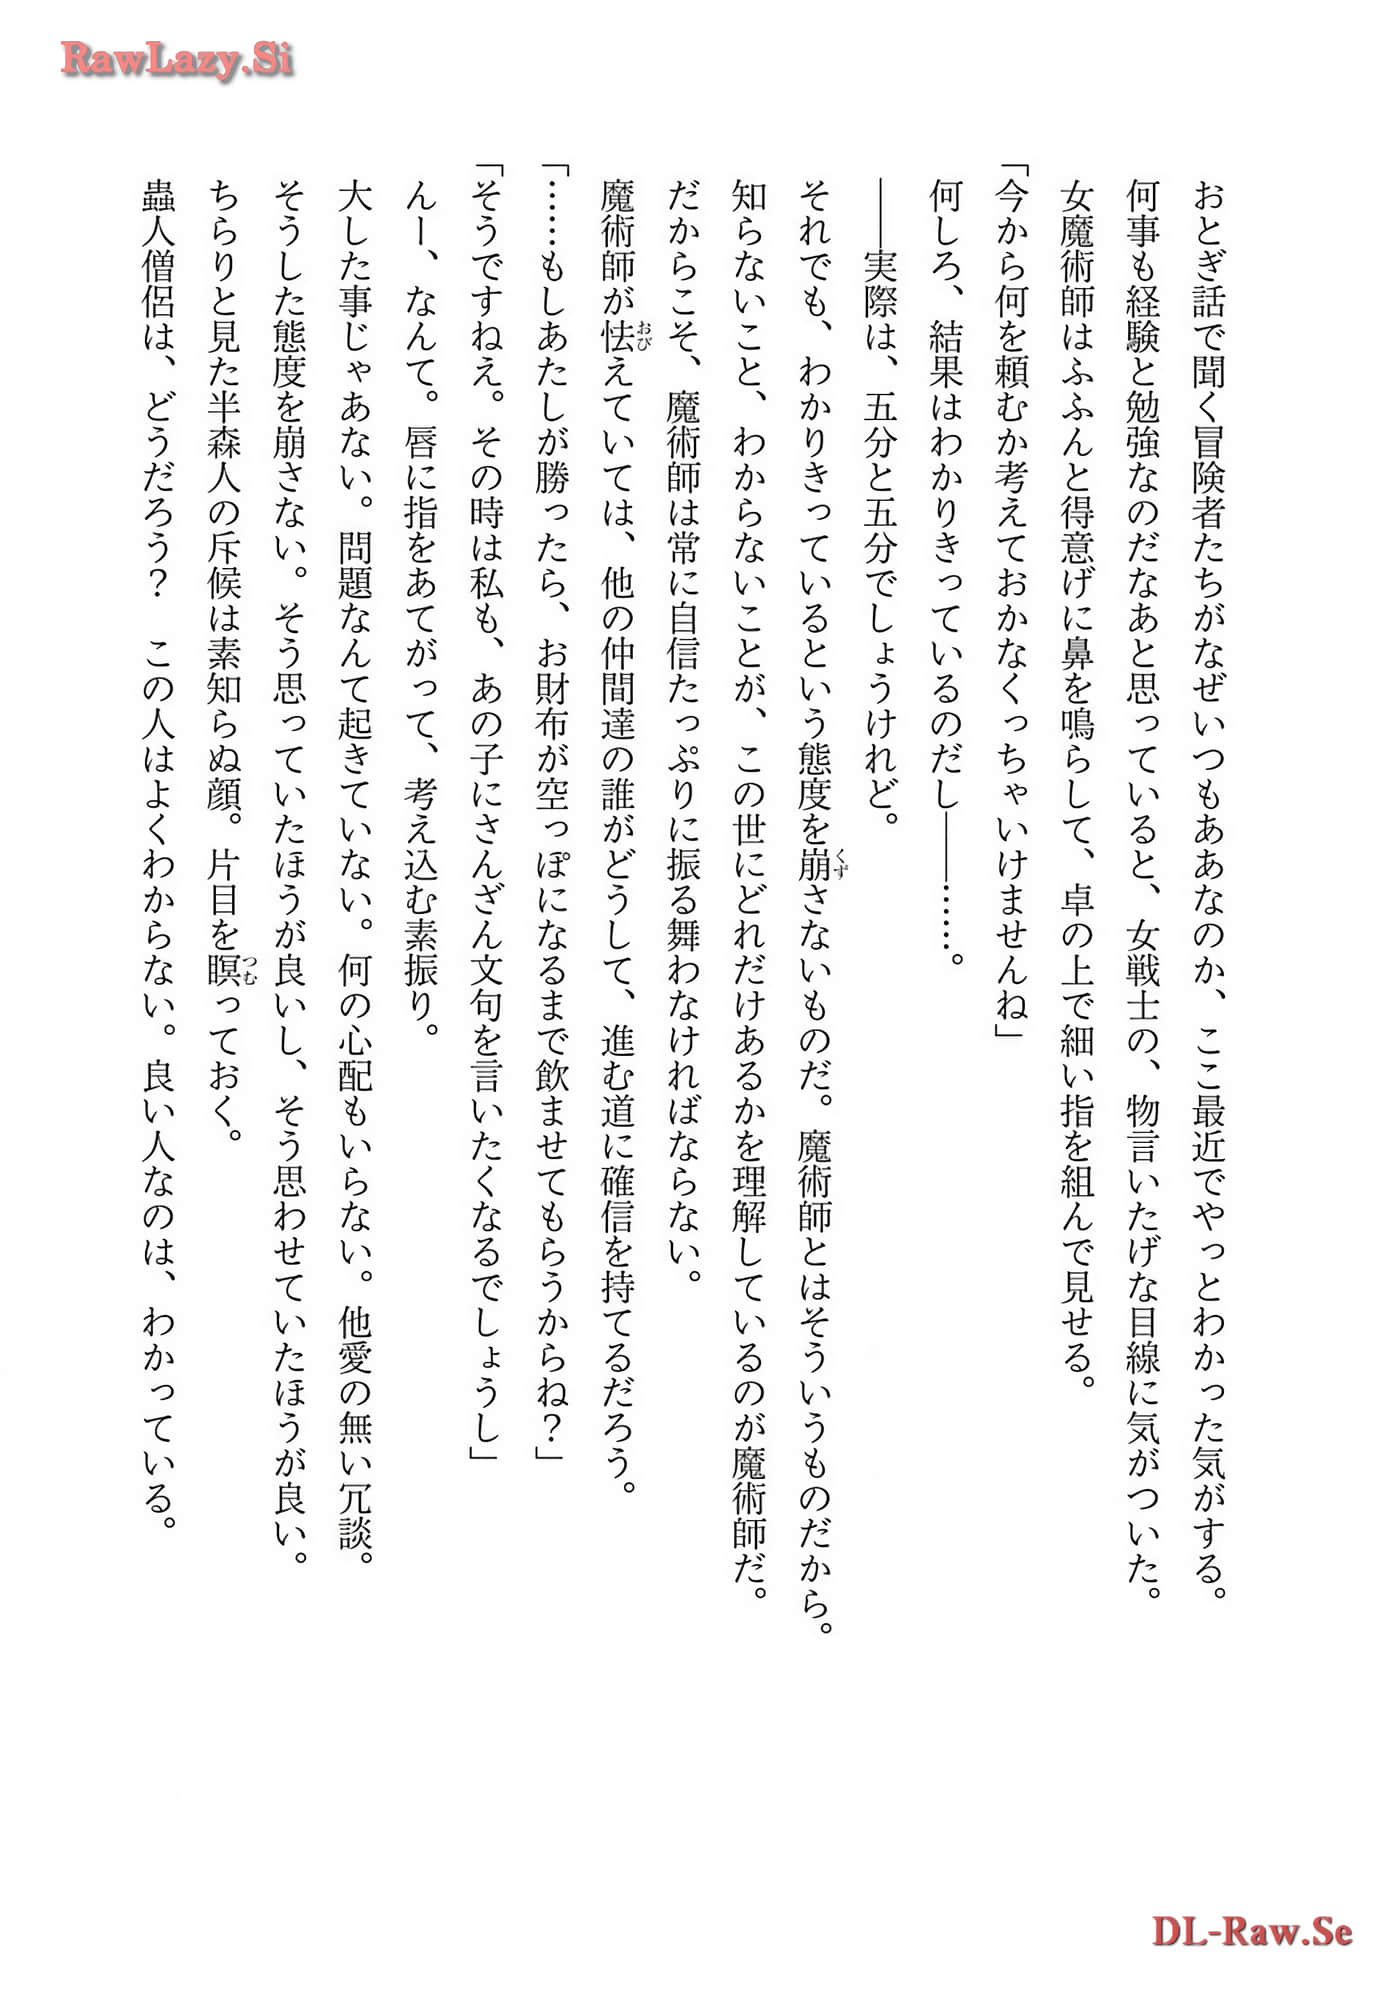 RawLazy.Si
おとぎ話で聞く冒険者たちがなぜいつもああなのか、ここ最近でやっとわかった気がする。
何事も経験と勉強なのだなあと思っていると、女戦士の、物言いたげな目線に気がついた。
女魔術師はふふんと得意げに鼻を鳴らして、卓の上で細い指を組んで見せる。
「今から何を頼むか考えておかなくっちゃいけませんね」
何しろ、結果はわかりきっているのだし――……。
――実際は、五分と五分でしょうけれど。
それでも、わかりきっているという態度を崩さないものだ。魔術師とはそういうものだから。
くず
知らないこと、わからないことが、この世にどれだけあるかを理解しているのが魔術師だ。
だからこそ、魔術師は常に自信たっぷりに振る舞わなければならない。
魔術師が怯えていては、他の仲間達の誰がどうして、進む道に確信を持てるだろう。
おび
「……もしあたしが勝ったら、お財布が空っぽになるまで飲ませてもらうからね？」
「そうですねえ。その時は私も、あの子にさんざん文句を言いたくなるでしょうし」
んー、なんて。唇に指をあてがって、考え込む素振り。
大した事じゃあない。問題なんて起きていない。何の心配もいらない。他愛の無い冗談。
そうした態度を崩さない。そう思っていたほうが良いし、そう思わせていたほうが良い。
ちらりと見た半森人の斥候は素知らぬ顔。片目を瞑っておく。
つむ
蟲人僧侶は、どうだろう？　この人はよくわからない。良い人なのは、わかっている。
DL-Raw.Se